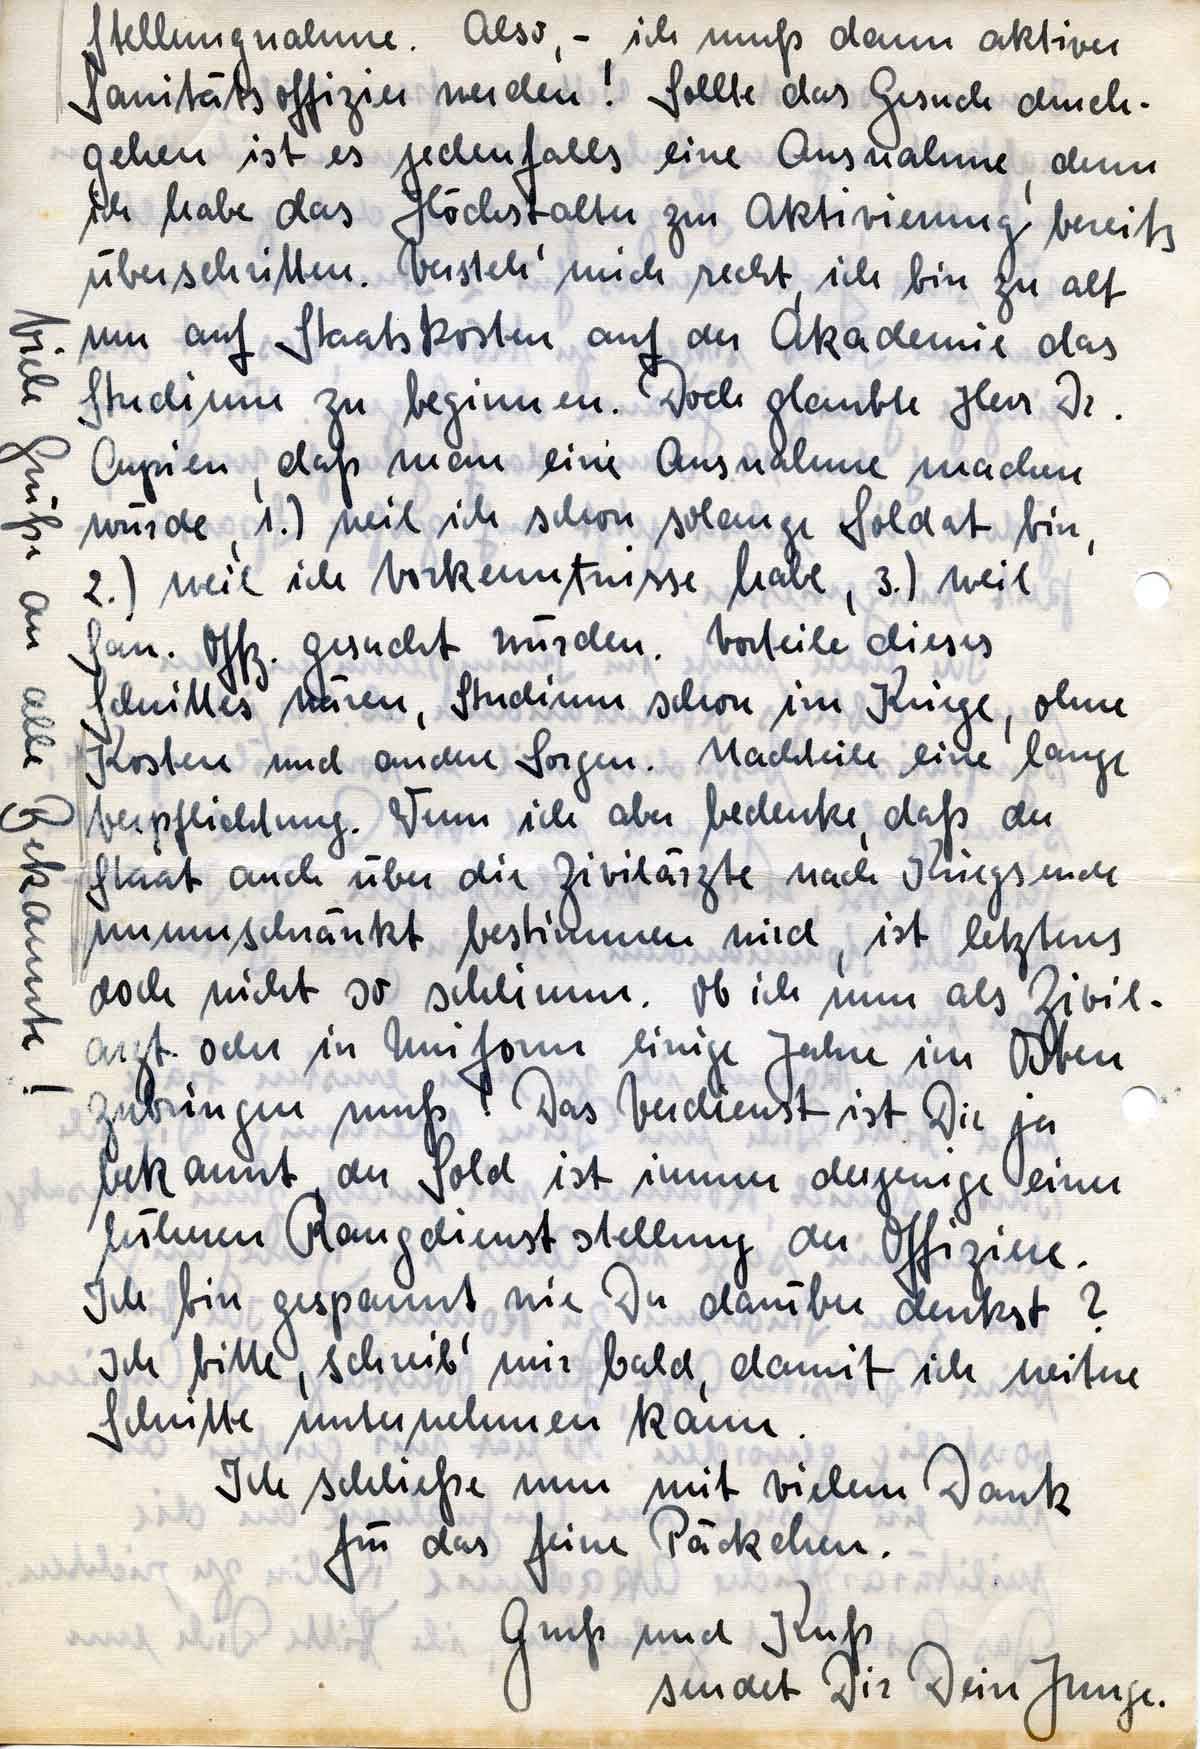 Stellungnahme. Also, - ich muß dann aktiver
Sanitätsoffizier werden! Sollte das Gesuch durch-
gehen ist es jedenfalls eine Ausnahme, denn
ich habe das Höchstalter zur Aktivierung bereits
überschritten. Versteh' mich recht, ich bin zu alt
um auf Staatskosten auf der Akademie das
Studium zu beginnen. Doch glaubte Herr Dr.
Cuprien, daß man eine Ausnahme machen
würde, 1.) weil ich schon solange Soldat bin,
2.) weil ich Vorkenntnisse habe, 3.) weil
San. Offz. gesucht würden. Vorteile dieses
Schrittes wären, Studium schon im Kriege, ohne
Kosten und andere Sorgen. Nachteile eine lange
Verpflichtung. Wenn ich aber bedenke, daß der
Staat auch über die Zivilärzte nach Kriegsende
unumschränkt bestimmen wird, ist letztens
doch nicht so schlimm. Ob ich nun als Zivil-
arzt oder in Uniform einige Jahre im Osten
zubringen muß! Das Verdienst ist Dir ja
bekannt, der Sold ist immer derjenige einer
höheren Rangdienststellung der Offiziere.
Ich bin gespannt wie Du darüber denkst?
Ich bitte, schreib' mir bald, damit ich weitere
Schritte unternehmen kann.
Ich schließe nun mit vielem Dank
für das feine Päckchen.
Gruß und Kuß
sendet Dir Dein Junge.
Viele Grüße an alle Bekannte!